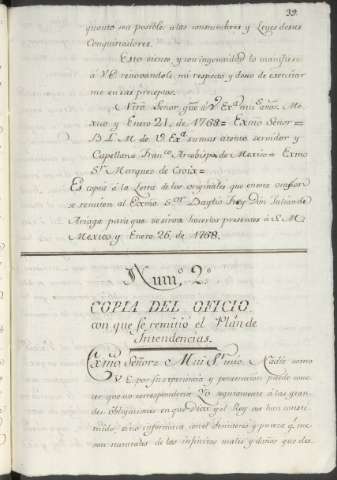 39.
quanto sea posible á las costumbres y Leyes de sus
Conquistadores.
Esto siento y con ingenuidad lo manifiesto
á V.E. renovandole mi respecto y deseo de exercitar
me en sus preceptos.
Ntro Señor gue á V. Exª ms. años. Me-
xico y Enero 21, de 1768 = Exmo Señor =
B. L. M. de V. Exª su mas atento servidor y
Capellan = Franco Arzobispo de Mexico = Exmo
Sr. Marques de Croix =
Es copia á la Letra de los originales que
se remiten al Exmo Sor Baylio Frey Don Julian de
Arriaga para que se sirva hacerlos presentes á S. M.
Mexico y Enero 26, de 1768.
Num.o 2.o
COPIA DEL OFICIO
con que se remitió el Plan de
Intendencias.
Exmo Señor = Mui Sr. mio. Nadie como
V E por su experiencia y penetracion puede cono-
cer que no corresponderia Yo seguramente á las gran-
des obligaciones en que Dios y el Rey me han consti-
tuido, si no informára con el desinteres y pureza q. me
son naturales de los infinitos males y daños que des-